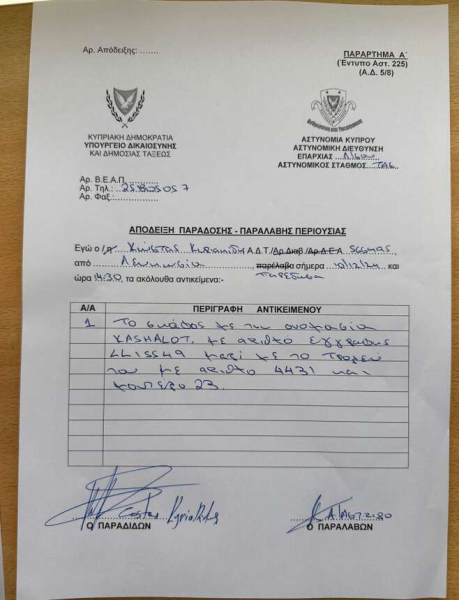 Αρ. Απόδειξης: .......
ΠΑΡΑΡΤΗΜΑ Α΄
(Έντυπο Αστ. 225)
(Α.Δ. 5/8)
ΚΥΠΡΙΑΚΗ ΔΗΜΟΚΡΑΤΙΑ
ΥΠΟΥΡΓΕΙΟ ΔΙΚΑΙΟΣΥΝΗΣ
ΚΑΙ ΔΗΜΟΣΙΑΣ ΤΑΞΕΩΣ
ΑΣΤΥΝΟΜΙΑ ΚΥΠΡΟΥ
ΑΣΤΥΝΟΜΙΚΗ ΔΙΕΥΘΥΝΣΗ
ΕΠΑΡΧΙΑΣ
ΑΣΤΥΝΟΜΙΚΟΣ ΣΤΑΘΜΟΣ
Αρ. Β.Ε.Α.Π.
Αρ. Τηλ.:
Αρ. Φαξ:
ΑΠΟΔΕΙΞΗ ΠΑΡΑΔΟΣΗΣ - ΠΑΡΑΛΑΒΗΣ ΠΕΡΙΟΥΣΙΑΣ
Εγώ ο /η Κώστας Α.Δ.Τ./Αρ.Διαβ./Αρ.Δ.Ε.Α
από Λευκωσία παρέλαβα σήμερα 10/12/24 και
παρέδωσα
ώρα 14:30, τα ακόλουθα αντικείμενα:-
Α/Α ΠΕΡΙΓΡΑΦΗ ΑΝΤΙΚΕΙΜΕΝΟΥ
1 Το σκάφος με την ονομασία
KASHALOT, με αριθμό εγγραφής
LL15549 μαζί με το τρέιλερ
του με αριθμό 4431 και
κοντέξο 23.
Costas
Ο ΠΑΡΑΔΙΔΩΝ
Ο ΠΑΡΑΛΑΒΩΝ